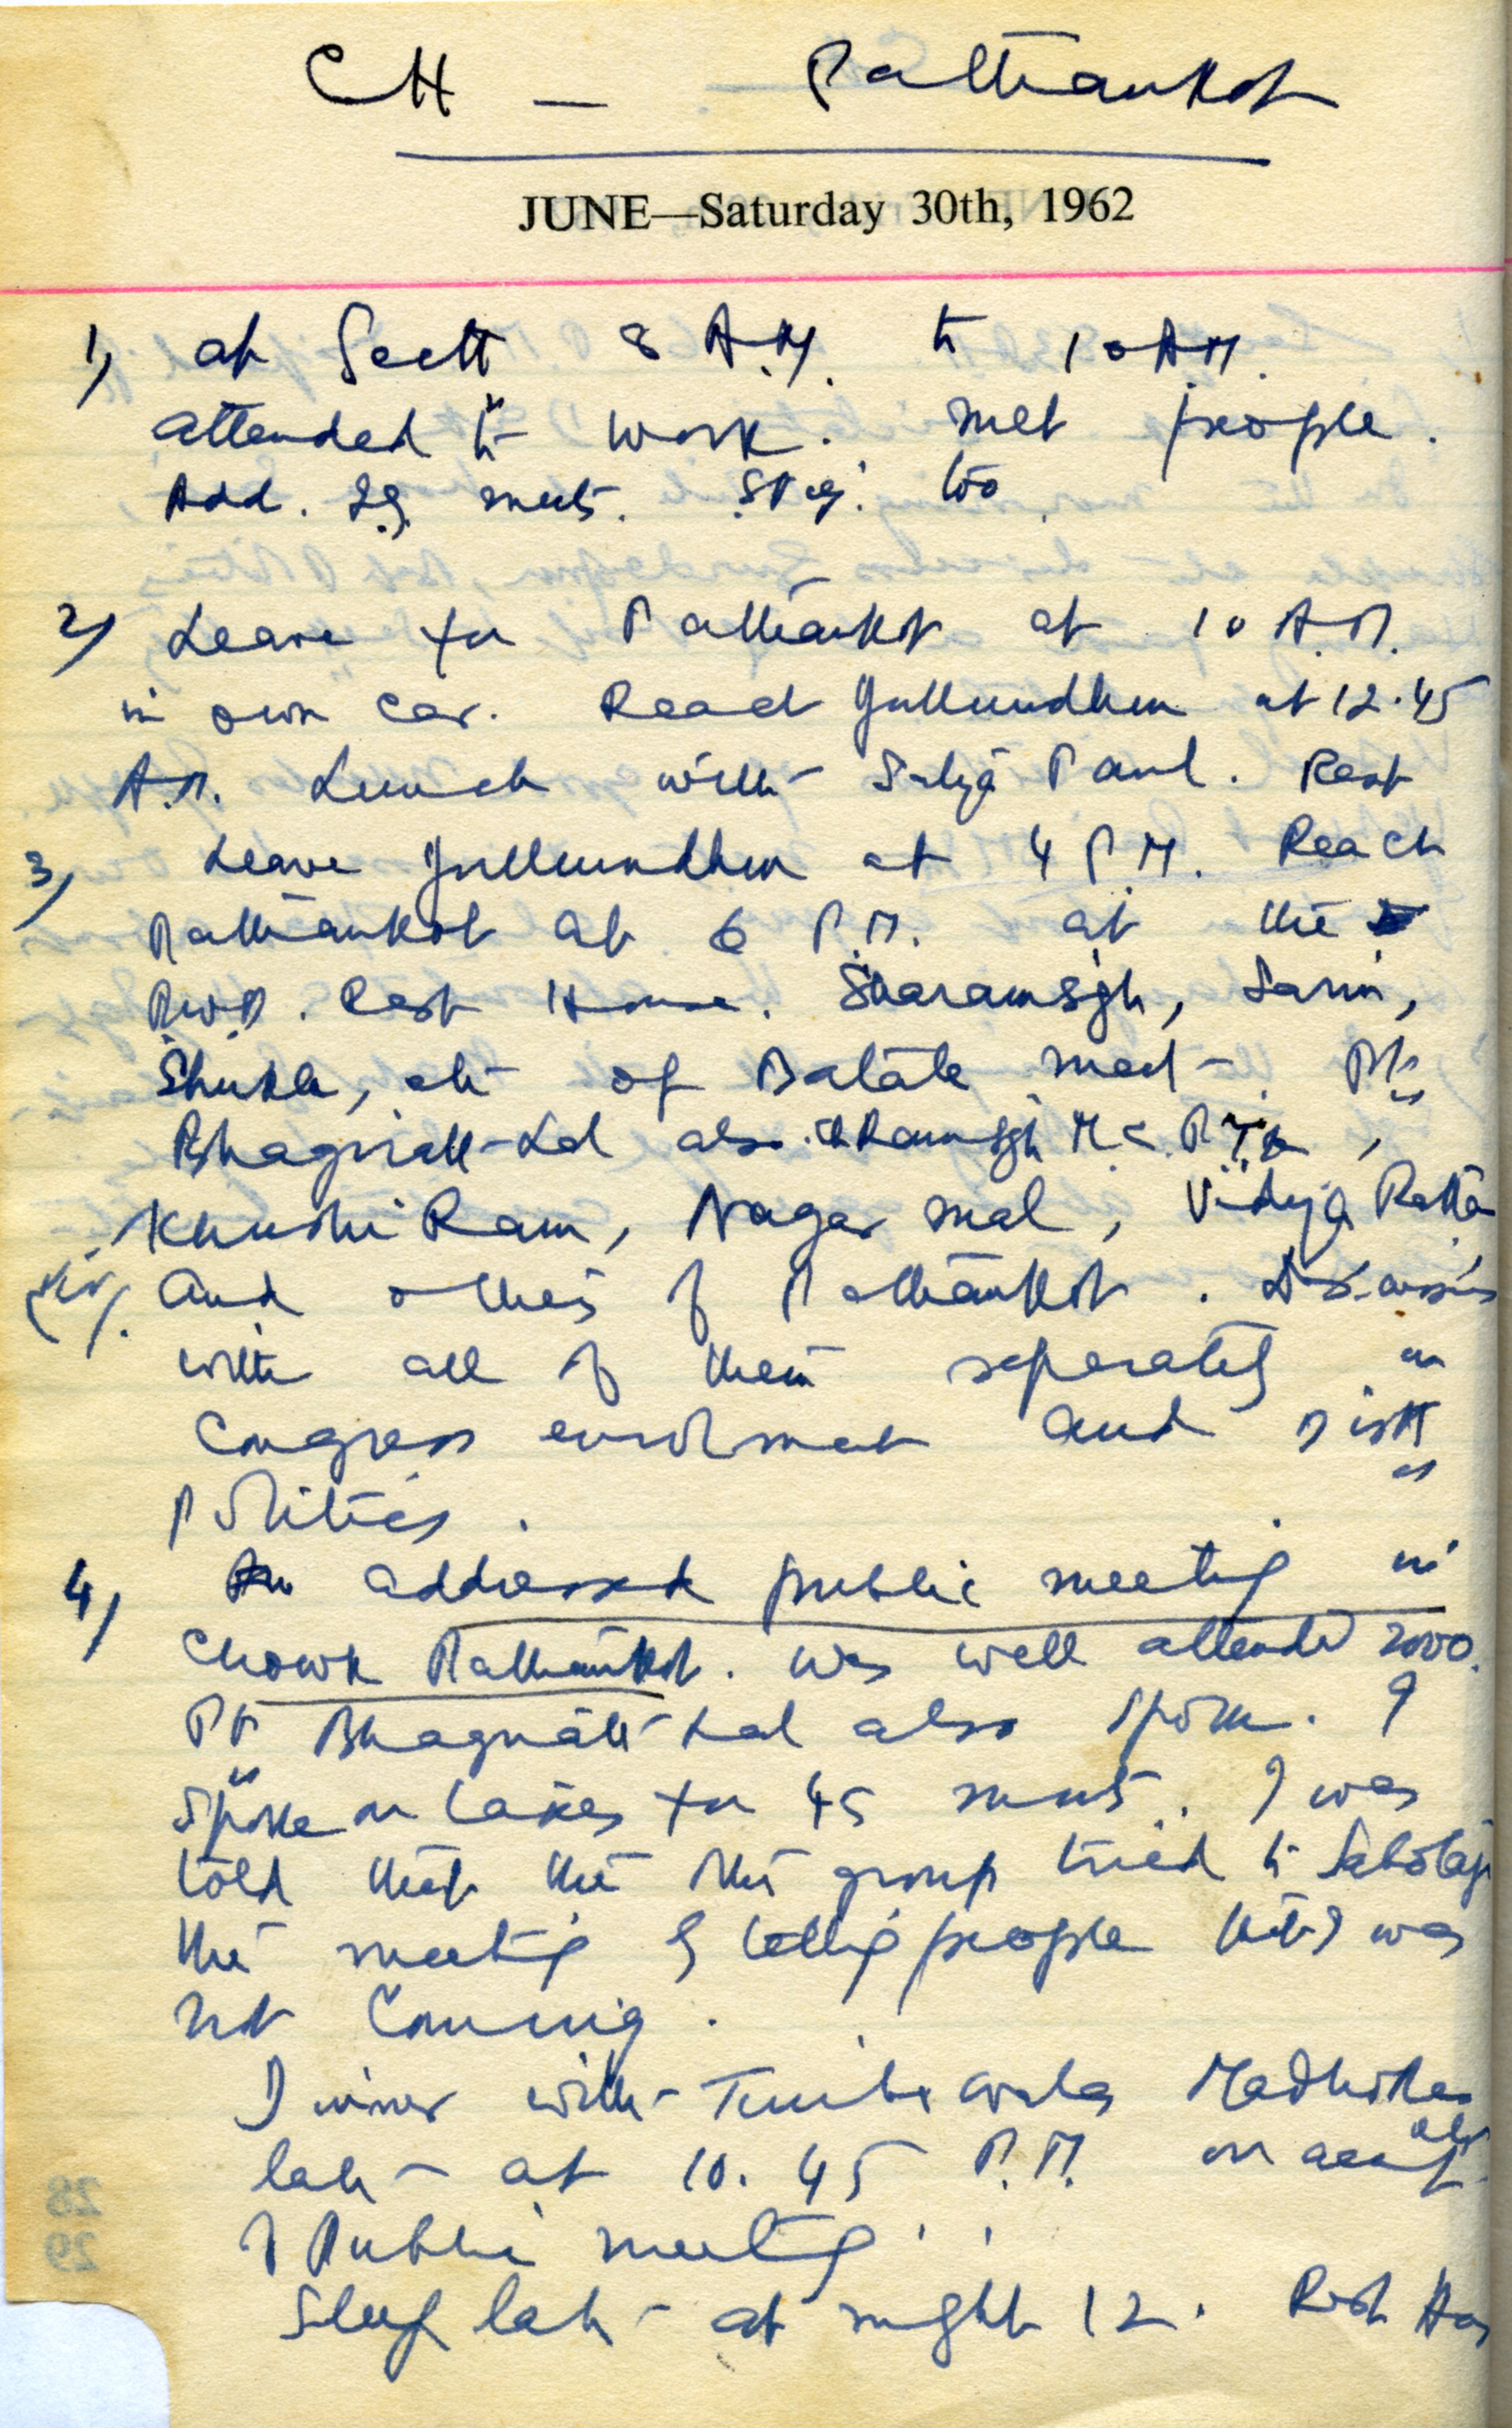 CH — Pathankot
JUNE—Saturday 30th, 1962
1) at Sectt 8 A.M. to 10 A.M.
attended to work. met people.
Add. I.G. meets. too
2) Leave for Pathankot at 10 A.M.
in own car. Reach Jullundhur at 12.45
A.M. Lunch with Satya Paul. Rest
3) Leave Jullundhur at 4 P.M. Reach
Pathankot at 6 P.M. at the
P.W.D. Rest House. Sarin,
Shukla, etc of Batala meet. Pt.
Bhagnath Lal also.
Khushi Ram, Nagar Mal, Vidya Rattan
and others of Pathankot. Discussions
with all of them seperately on
Congress enrolment and Distt
Politics.
4) addressed public meeting in
Chowk Pathankot. Was well attended 2000.
Pt Bhagnath Lal also spoke. I
spoke on taxes for 45 mnts. I was
told that the group tried to Sabotage
the meeting by telling people that I was
not Comming.
Dinner with Timber wala Madhok
late at 10.45 P.M. on acct
of Public meeting.
Sleep late at night 12. Rest House